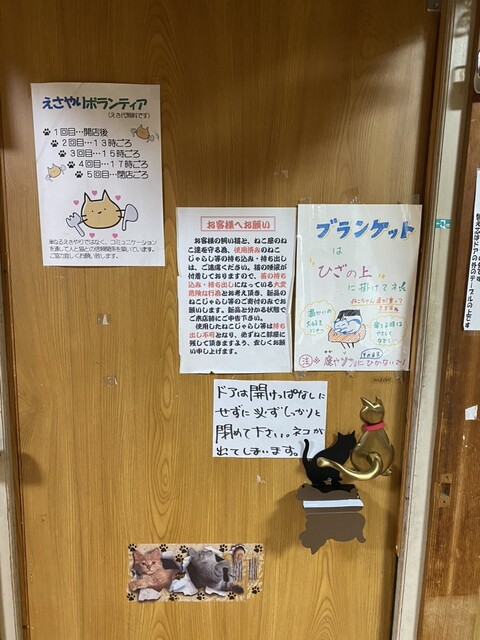 えさやりボランティア
(えさ代無料です)
1回目…開店後
2回目…13時ごろ
3回目…15時ごろ
4回目…17時ごろ
5回目…閉店ごろ
単なるえさやりではなく、コミュニケーション
を通して人と猫との信頼関係を築いています。
ご協力宜しくお願い致します。
お客様へお願い
お客様の飼い猫と、ねこ屋のね
こ達を守る為、使用済みのねこ
じゃらし等の持ち込み・持ち出し
は、ご遠慮ください。猫の唾液が
付着しておりますので、菌の持ち
込み・持ち出しになっている大変
危険な行為とお考え頂き、新品の
ねこじゃらし等のご寄付のみでお
願いします。新品と分かる状態で
ご来店時にご申告下さい。
使用したねこじゃらし等は持ち
出し不可となり、必ずねこ部屋に
残して頂きますよう、宜しくお願
い申し上げます。
ブランケット
は
ひざの上
に掛けてネ
ねこちゃん達が乗って
注※ 床やソファにひかないで!
ドアは開けっぱなしに
せずに必ずしっかりと
閉めて下さい。ネコが
出てしまいます。